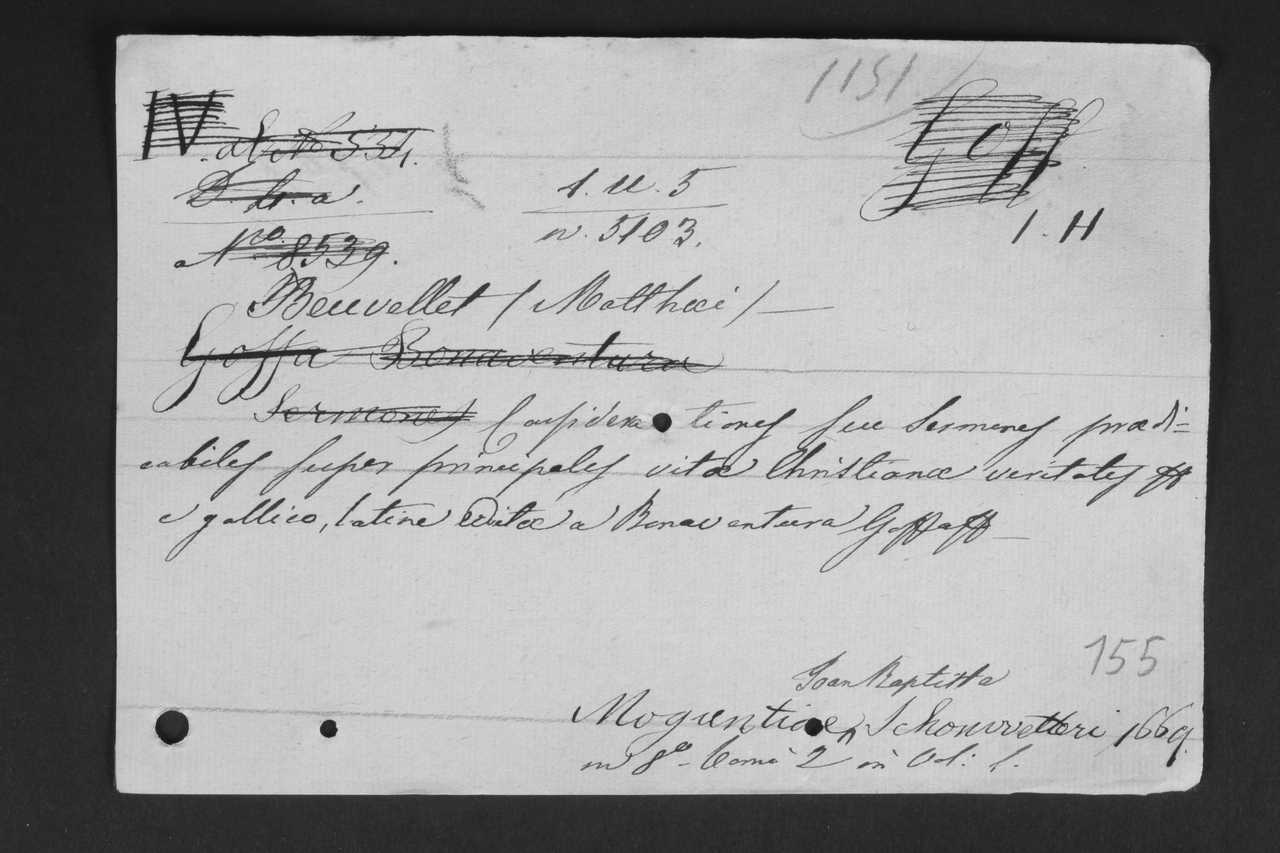 1151
IV
Goff
D. Lr. a.
1. U. 5
n. 5103.
1. H
No. 8539.
Beuvellet (Matthæi) —
Goffa Bonaventura
Sermones Considerationes seu Sermones prædi=
cabiles super principales vitæ Christianæ veritates
e gallico, latine edita a Bonaventura Goffa —
155
Joan Baptista
Moguntiae, Schonwetteri 1669.
in 8o. tomi 2 in